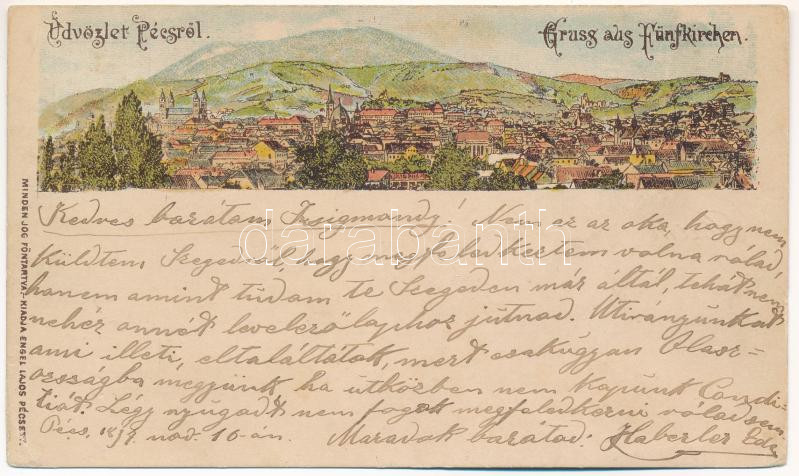 Üdvözlet Pécsről.
Gruss aus Fünfkirchen.
Kedves barátom Zsigmondy! Nem ez az oka, hogy nem
küldtem Szegedről, hogy megfeledkeztem volna rólad,
hanem amint tudom te Szegeden már által, tehát nem
nehéz annét levelezőlaphoz jutnod. Utirányunkat
ami illeti, eltaláltátok, mert csakúgyan Olasz-
országba megyünk ha útközben nem kapunk Condi-
tiót. Légy nyugodt nem fogok megfeledkezni rólad sem.
Pécs, nov. 16-án. Maradok barátod: Haberler Ede
MINDEN JOG FÖNTARTVA. KIADJA ENGEL LAJOS PÉCSETT.
darabanth